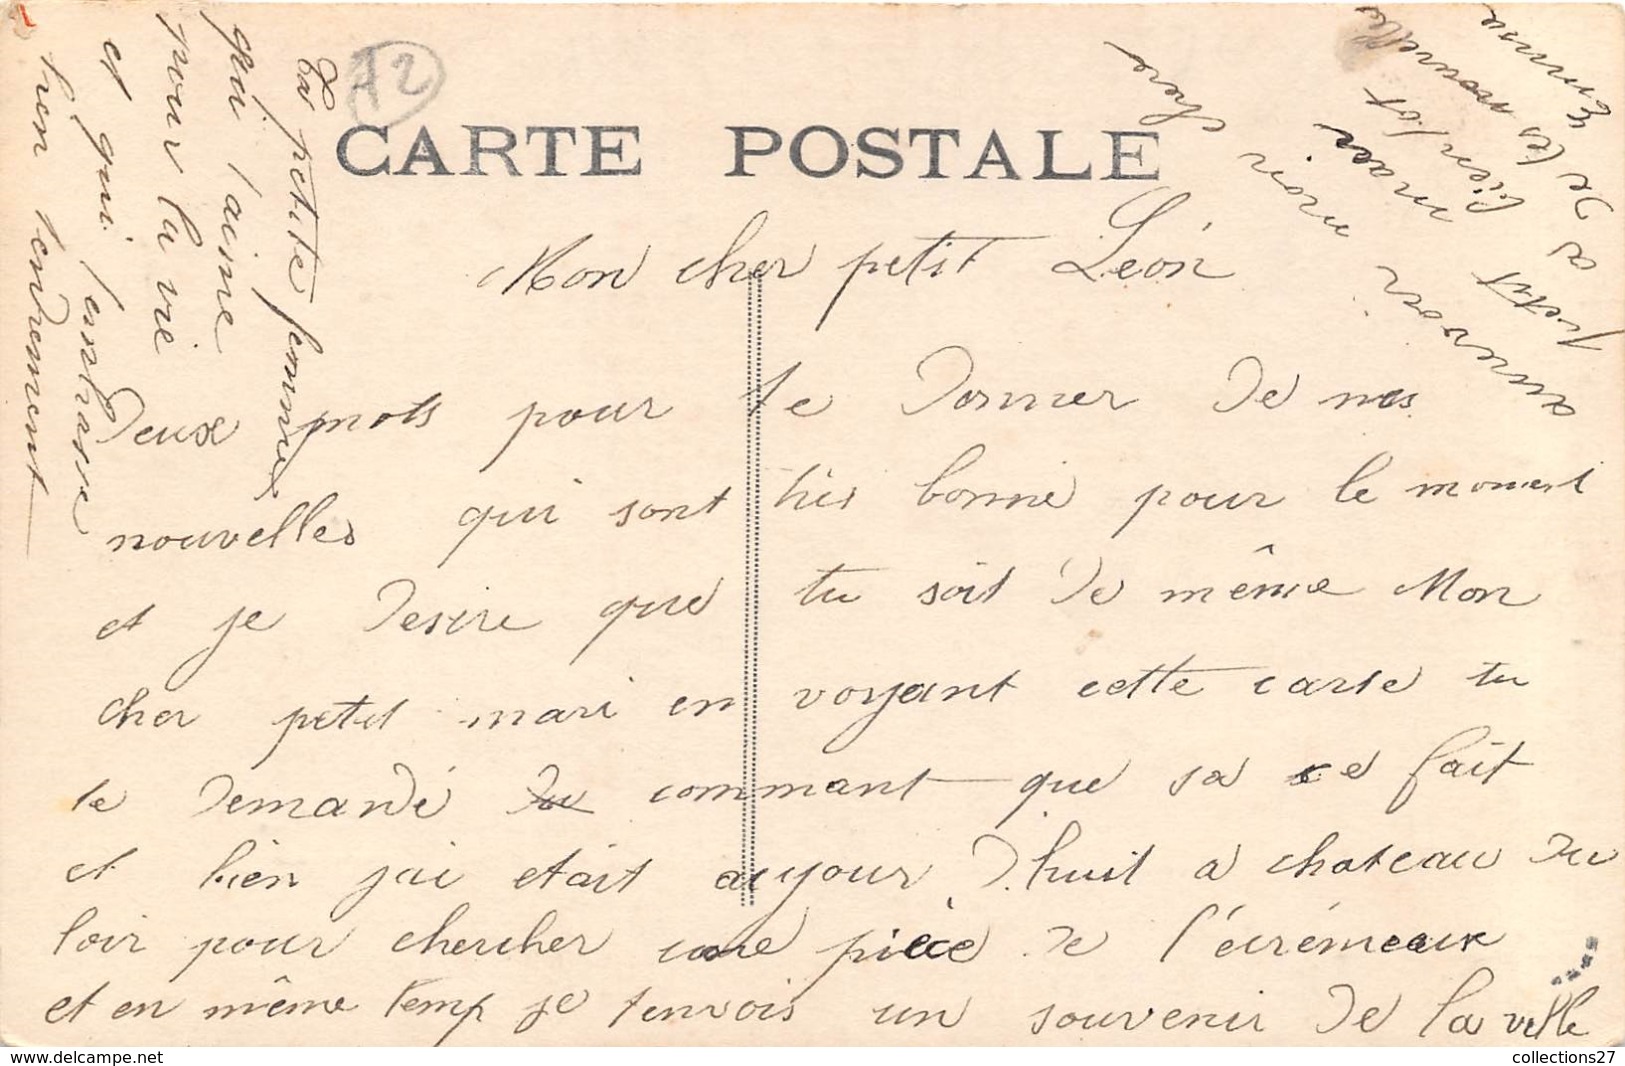 72
CARTE POSTALE
Mon cher petit Léon
Deux mots pour te donner de mes
nouvelles qui sont très bonne pour le moment
et je desire que tu soit de même Mon
cher petit mari en voyant cette carte tu
te demandé du commant que sa ce fait
et bien jai etait aujour d'huit a chateau du
loir pour chercher une pièce de l'écrémeux
et en même temp je tenvois un souvenir de la ville
aurevoir mon cher
petit mari
a bientot
de tes nouvelles
Emma
ta petite femme
qui taime
pour la vie
et qui tembrasse
bien tendrement
collections27